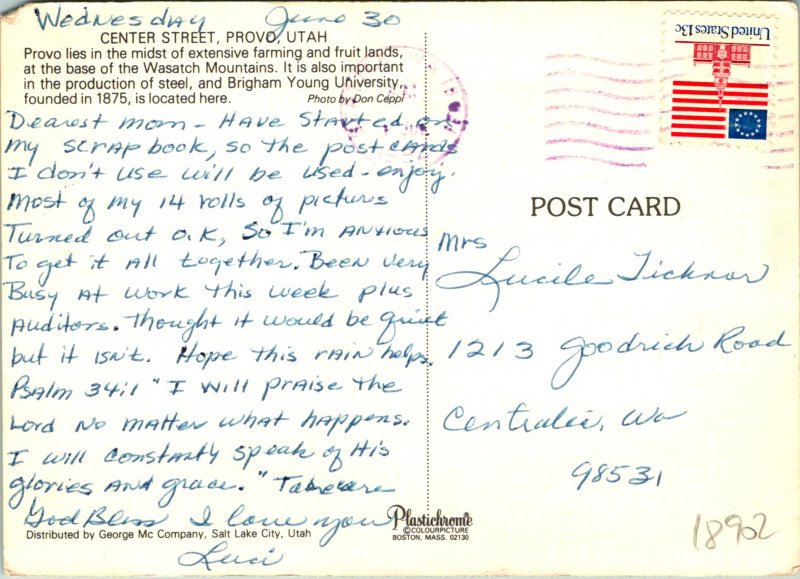 Wednesday June 30
CENTER STREET, PROVO, UTAH
Provo lies in the midst of extensive farming and fruit lands,
at the base of the Wasatch Mountains. It is also important
in the production of steel, and Brigham Young University,
founded in 1875, is located here. Photo by Don Ceppi
Dearest mom - Have started on
my scrapbook, so the postcards
I don't use will be used - enjoy.
Most of my 14 rolls of pictures
Turned out O.K, So I'm anxious
To get it all together. Been very
Busy at work this week plus
auditors. Thought it would be quiet
but it isn't. Hope this rain helps.
Psalm 34:1 "I will praise the
Lord no matter what happens.
I will constantly speak of His
glories and grace." Take care
God Bless I love you
Luci
Distributed by George Mc Company, Salt Lake City, Utah
Plastichrome
©COLOURPICTURE
BOSTON, MASS. 02130
United States 13c
POST CARD
Mrs
Lucile Ticknor
1213 Goodrich Road
Centralia, Wa
98531
18902